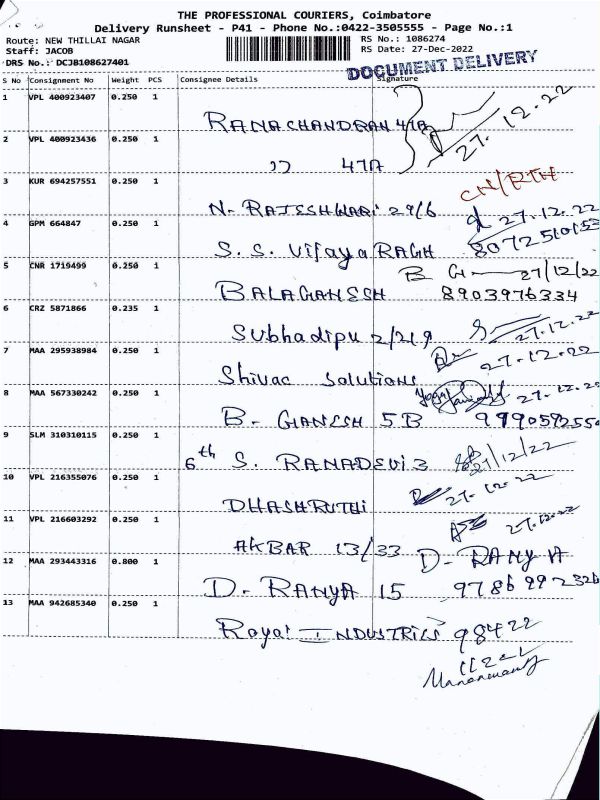 THE PROFESSIONAL COURIERS, Coimbatore
Delivery Runsheet - P41 - Phone No.:0422-3505555 - Page No.:1
Route: NEW THILLAI NAGAR RS No.: 1086274
Staff: JACOB RS Date: 27-Dec-2022
DRS No.: DCJB108627401
DOCUMENT DELIVERY
S No Consignment No Weight PCS Consignee Details Signature
1 VPL 400923407 0.250 1
RAMACHANDRAN 47A 27.12.22
2 VPL 400923436 0.250 1
47A
3 KUR 694257551 0.250 1 CN/RTH
N. RAJESHWARI 29/6 27.12.22
4 GPM 664847 0.250 1
S. S. Vijaya RAGH 8072510153
5 CNR 1719499 0.250 1 B G 27/12/22
BALAGANESH 8903976334
6 CRZ 5871866 0.235 1
Subhadipu 2/219 27.12.22
7 MAA 295938984 0.250 1 27.12.22
Shivac Solutions
8 MAA 567330242 0.250 1 27.12.22
B. GANESH 5B 9990592550
9 SLM 310310115 0.250 1
6th S. RAMADEVI 3 27/12/22
10 VPL 216355076 0.250 1 27.12.22
DHASHRUTHI
11 VPL 216603292 0.250 1 27.12.22
AKBAR 13/33
12 MAA 293443316 0.800 1 D. RANYA
D. RANYA 15 9786992326
13 MAA 942685340 0.250 1
Royal INDUSTRIES 98422
11221